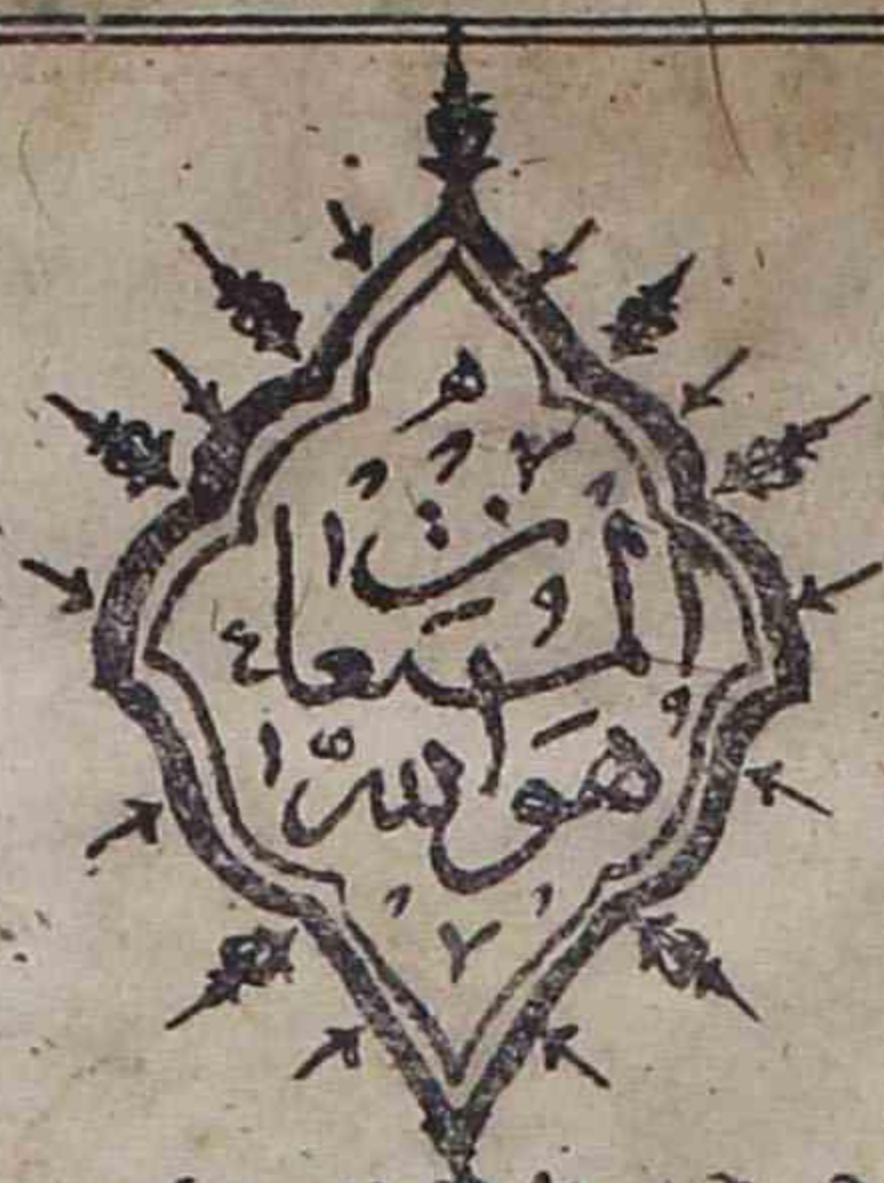 هو الله
المستعان